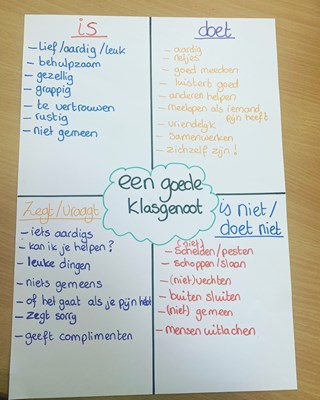 is
- Lief/aardig/leuk
- behulpzaam
- gezellig
- grappig
- te vertrouwen
- rustig
- niet gemeen
doet
- aardig
- netjes
- goed meedoen
- luistert goed
- anderen helpen
- meelopen als iemand
pijn heeft
- vriendelijk
- samenwerken
- zichzelf zijn!
een goede
klasgenoot
Zegt/vraagt
- iets aardigs
- kan ik je helpen?
- leuke dingen
- niets gemeens
- of het gaat als je pijn hebt
- zegt sorry
- geeft complimenten
is niet/
doet niet
(niet)
- schelden/pesten
- schoppen/slaan
- (niet) vechten
- buiten sluiten
- (niet) gemeen
- mensen uitlachen